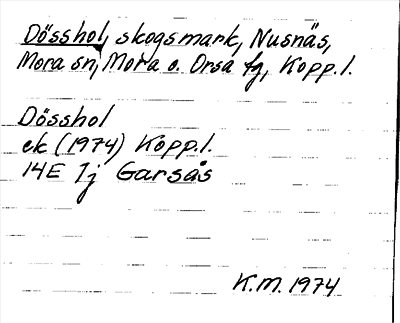 Dösshol, skogsmark, Nusnäs,
Mora sn, Mora o. Orsa fg, Kopp. l.
Dösshol
ek (1974) Kopp. l.
14E Ij Garsås
K.M. 1974